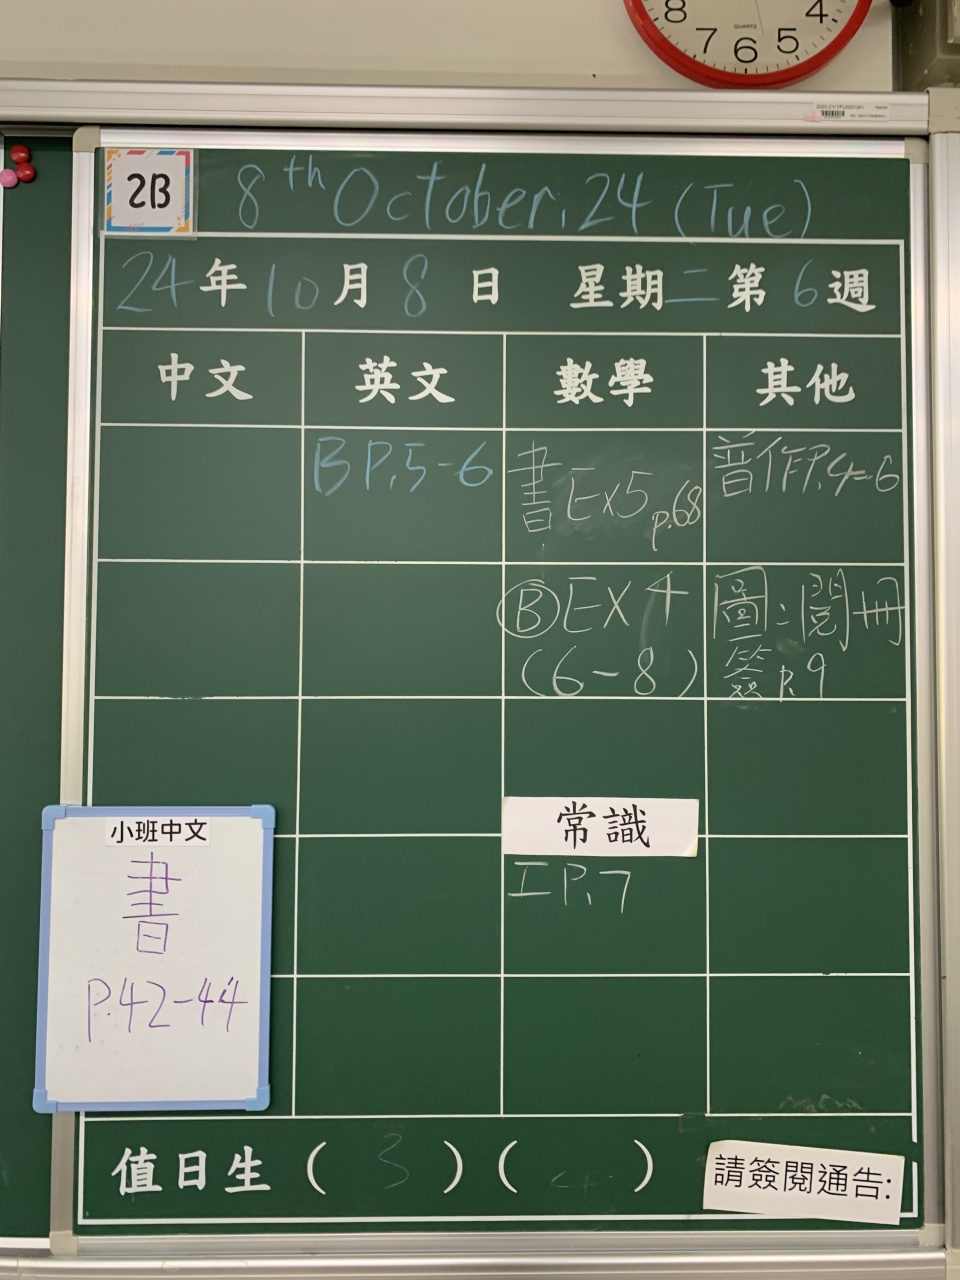 8
4
7
6
5
QUARTZ
2B
8th October, 24 (Tue)
24年10月8日 星期二第6週
中文 英文 數學 其他
B P.5-6
書 Ex5 p.68
普作P.4-6
Ⓑ EX 4
(6-8)
圖:閱冊
簽 p.9
常識
I P.7
小班中文
書
P.42-44
值日生 ( 3 ) ( )
請簽閱通告: